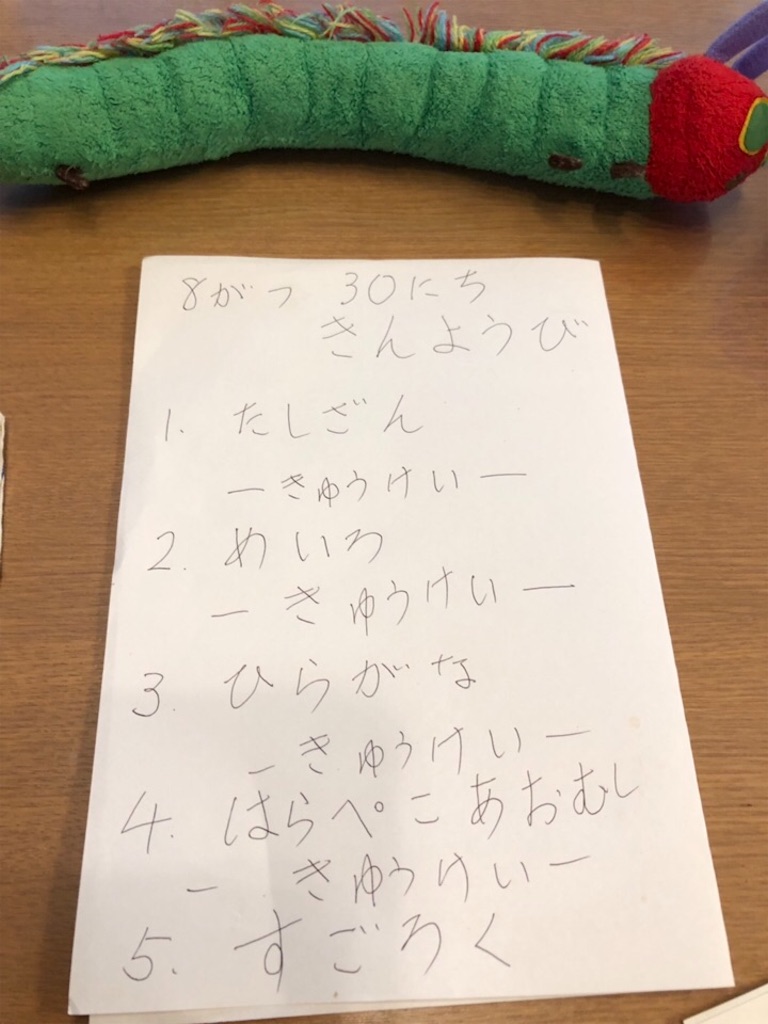 8がつ 30にち
きんようび
1. たしざん
ーきゅうけいー
2. めいろ
ーきゅうけいー
3. ひらがな
ーきゅうけいー
4. はらぺこあおむし
ーきゅうけいー
5. すごろく